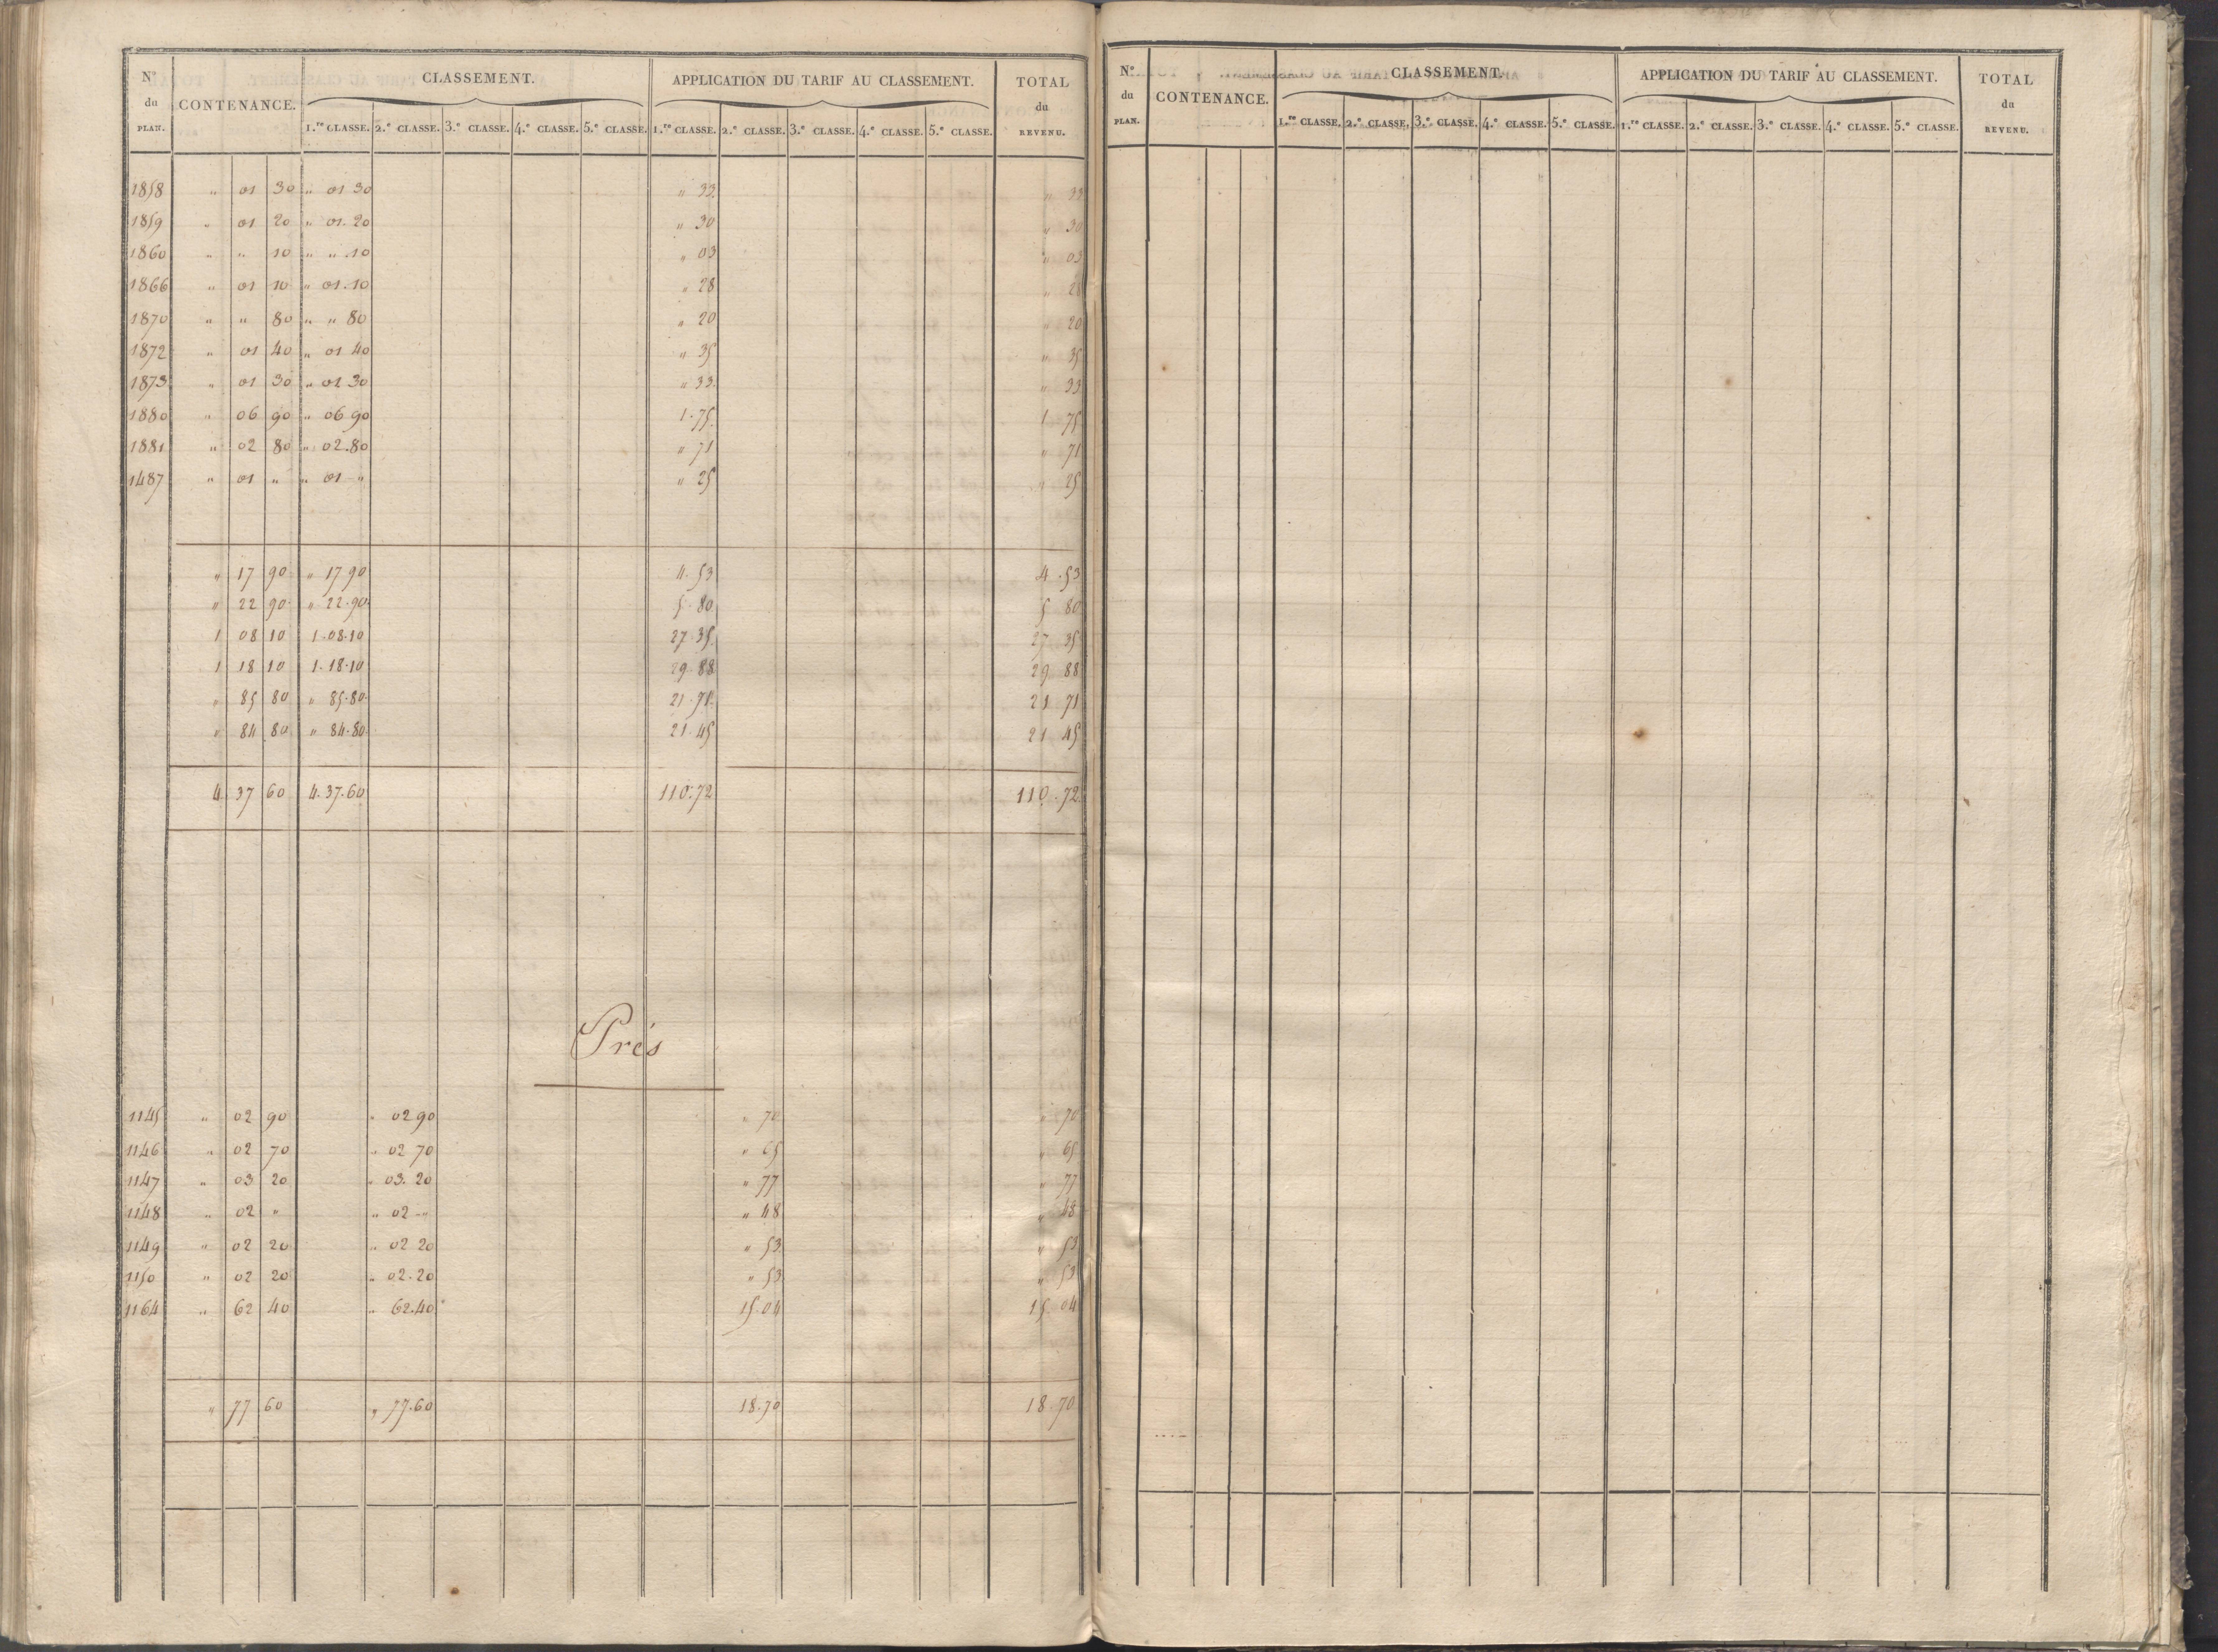 N° du PLAN. CONTENANCE. CLASSEMENT. APPLICATION DU TARIF AU CLASSEMENT. TOTAL du REVENU.
1.re CLASSE. 2.e CLASSE. 3.e CLASSE. 4.e CLASSE. 5.e CLASSE. 1.re CLASSE. 2.e CLASSE. 3.e CLASSE. 4.e CLASSE. 5.e CLASSE.
1858 " 01 30 " 01 30 " 33 " 33
1859 " 01 20 " 01.20 " 30 " 30
1860 " " 10 " " 10 " 03 " 03
1866 " 01 10 " 01.10 " 28 " 28
1870 " " 80 " " 80 " 20 " 20
1872 " 01 40 " 01 40 " 35 " 35
1873 " 01 30 " 01 30 " 33 " 33
1880 " 06 90 " 06 90 1.75 1 75
1881 " 02 80 " 02.80 " 71 " 71
1487 " 01 " " 01 " " 25 " 25
" 17 90 " 17 90 4.53 4.53
" 22 90 " 22.90 5.80 5 80
1 08 10 1.08.10 27.35 27 35
1 18 10 1.18.10 29.88 29 88
" 85 80 " 85.80 21.71 21 71
" 84 80 " 84.80 21.45 21 45
4 37 60 4.37.60 110.72 110.72
Prés
1145 " 02 90 " 02 90 " 70 " 70
1146 " 02 70 " 02 70 " 65 " 65
1147 " 03 20 " 03.20 " 77 " 77
1148 " 02 " " 02 " " 48 " 48
1149 " 02 20 " 02 20 " 53 " 53
1150 " 02 20 " 02.20 " 53 " 53
1164 " 62 40 " 62.40 15.04 15.04
" 77 60 " 77.60 18.70 18.70
N° du PLAN. CONTENANCE. CLASSEMENT. APPLICATION DU TARIF AU CLASSEMENT. TOTAL du REVENU.
1.re CLASSE. 2.e CLASSE. 3.e CLASSE. 4.e CLASSE. 5.e CLASSE. 1.re CLASSE. 2.e CLASSE. 3.e CLASSE. 4.e CLASSE. 5.e CLASSE.